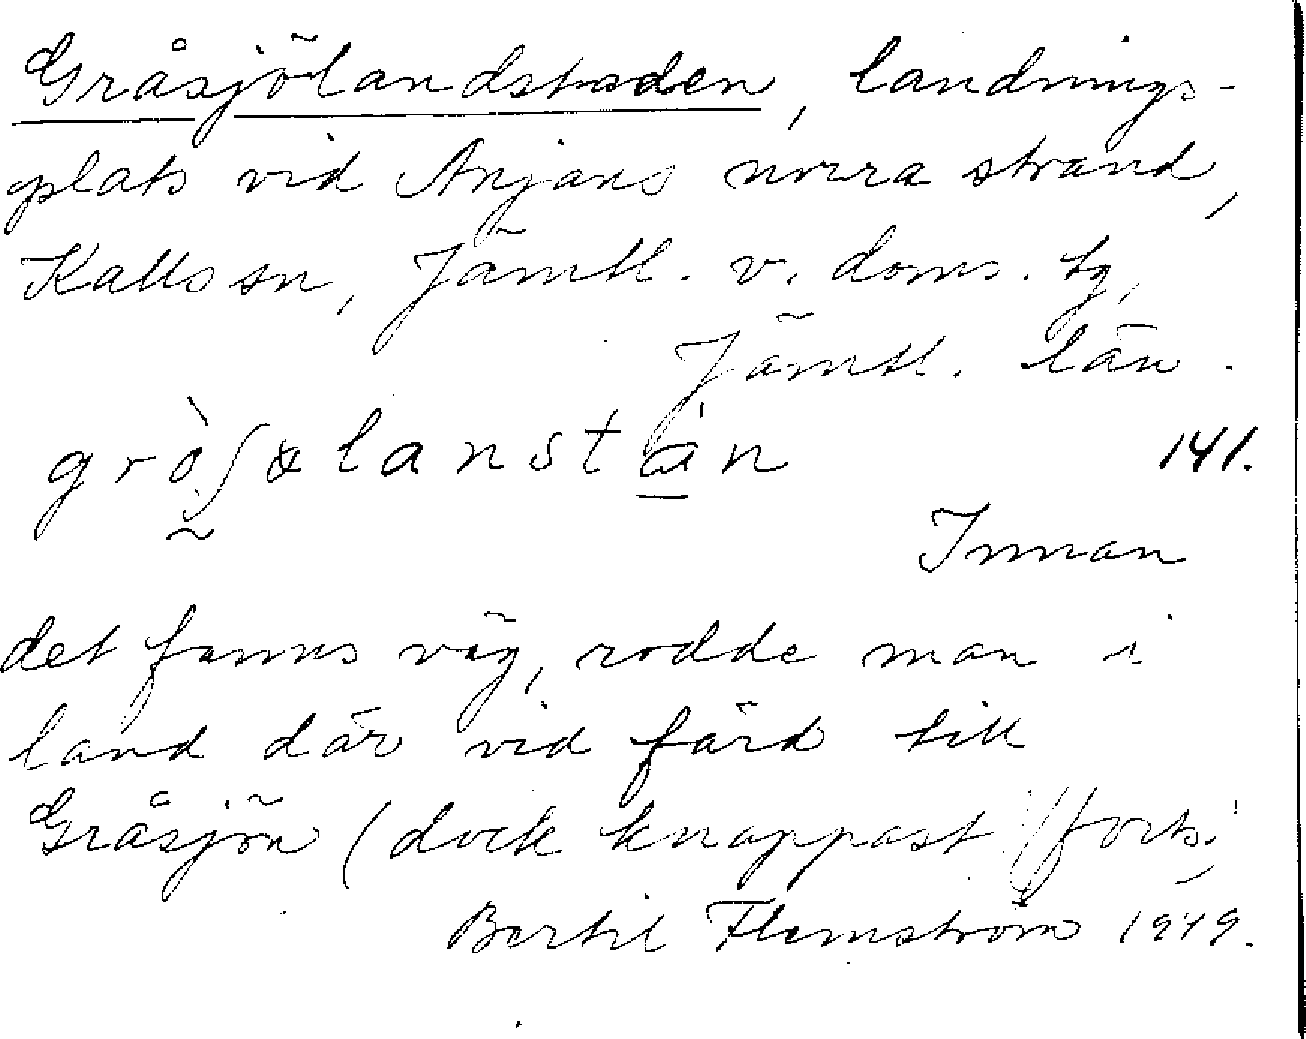 Gråsjölandstaden, landnings-
plats vid Anjans norra strand,
Kalls sn, Jämtl. v. doms. tg,
Jämtl. län.
141.
Innan
det fanns väg, rodde man i
land där vid färd till
Gråsjön (dock knappast //forts.
Bertil Flemström 1949.